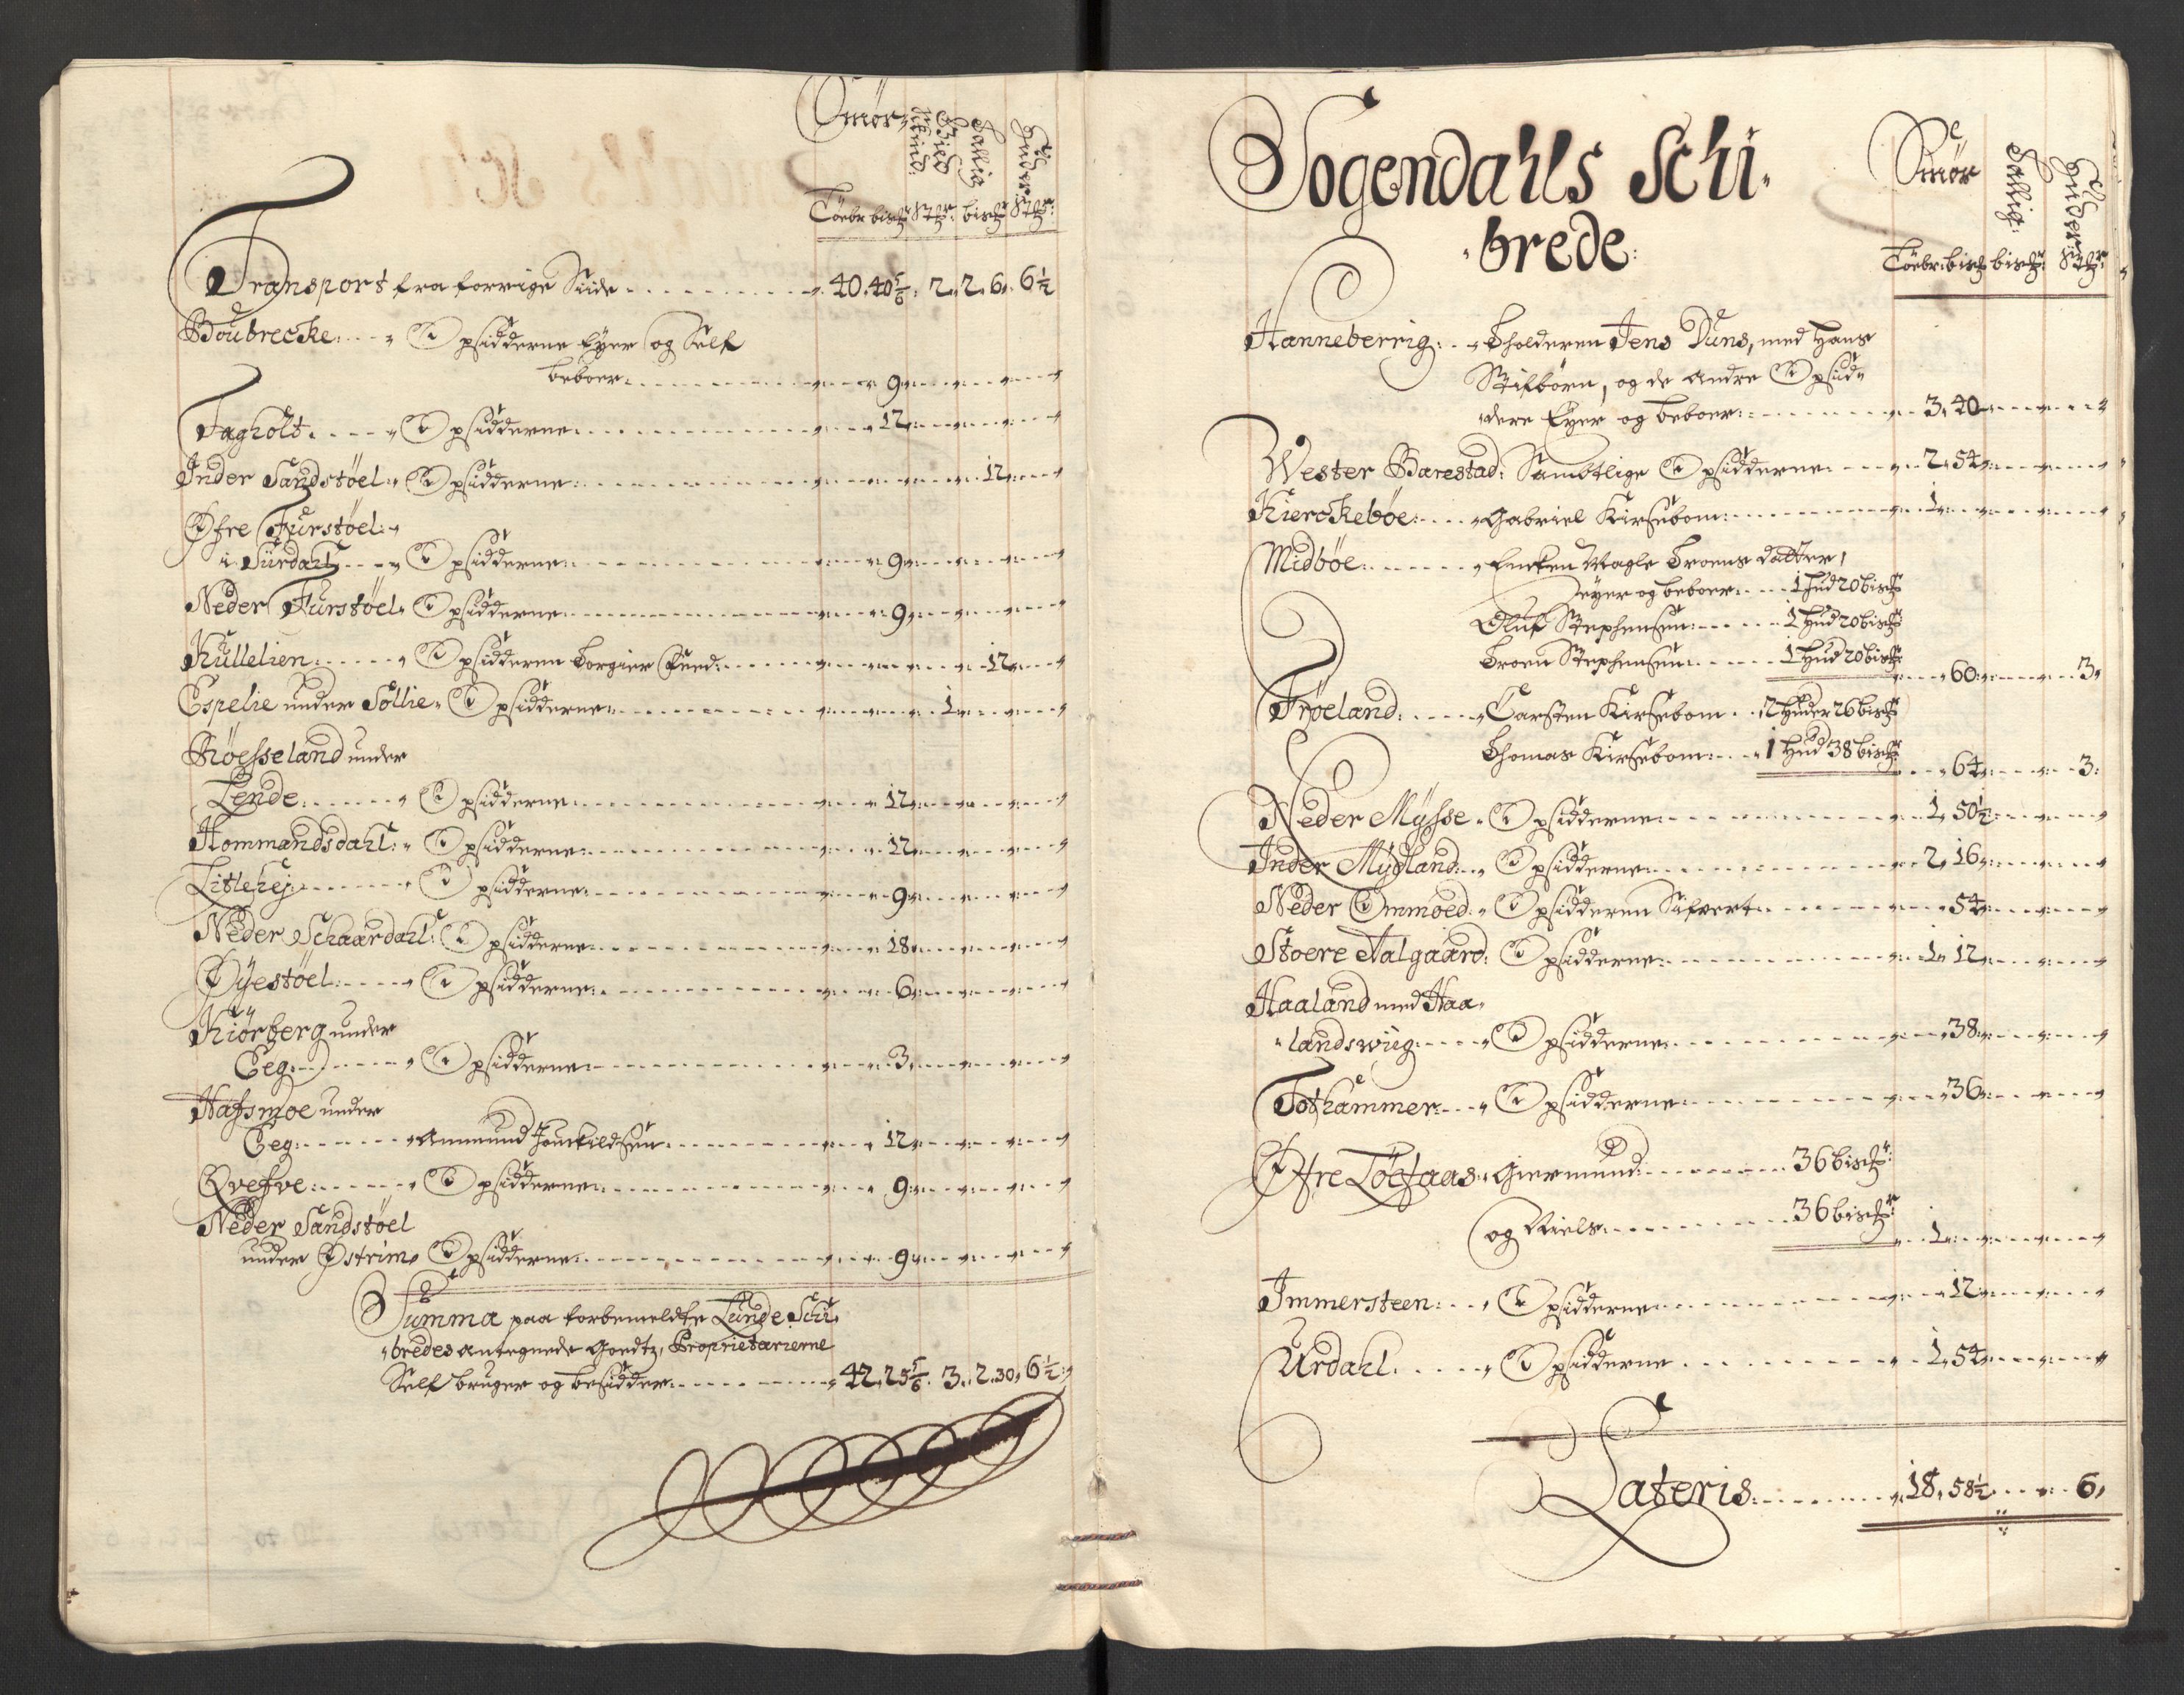 Smør, Skind Biud Tallig Huder
Løebr bischr Stchr bischr Stchr
Transport fra forrige Siide 40. 40 5/6. 2. 2. 6. 6 1/2
Boubrecke Opsidderne Eyer og Self
beboer 9
Fagholt Opsidderne 12
Inder Sandstøel Opsidderne 12
Øfre Furstøel
i Surdahl Opsidderne 9
Neder Furstøel Opsidderne 9
Kullelien Opsidderen Torgier 12
Espelie under Sollie Opsidderne 1
Røesseland under
Lende Opsidderne 12
Hommandsdahl Opsidderne 12
Litlehej Opsidderne 9
Neder Schaardahl Opsidderne 18
Øyestøel Opsidderne 6
Kiørberg under
Eeg Opsidderne 3
Hafsmoe under
Eeg Ammund 12
Qvefve Opsidderne 9
Neder Sandstøel
under Østrim Opsidderne 9
Summa paa forbemeldte Lunde Schi-
bredes Antegnede Goedtz, Proprietarierne
Self bruger og besidder 42. 25 5/6. 3. 2. 30. 6 1/2
Sogendahls Schi-
brede:
Smør Tallig: Huder:
Løebr: bischr bischr: Stchr:
Hanneberrig: Tholderen Jens Duns, med hans
Stifbørn, og de andre Opsid-
dere Eyer og beboer: 3. 40
Wester Barestad: Sambtlige Opsidderne 2. 54
Kierckebøe: Gabriel Kirsebom 1
Midbøe Encken Magle Troens datter,
eyer og beboer 1 hud 20 bischr
Oluf Stephensen 1 hud 20 bischr
Troen Stephensen 1 hud 20 bischr 60 3
Frøeland: Carsten Kirsebom 2 huder 26 bischr
Thomas Kirsebom 1 hud 38 bischr 64 3:
Neder Mysse Opsidderne 1. 50 1/2
Inder Mydland Opsidderne 2. 16
Neder Ommoed Opsidderen Sifvert 54
Stoere Aalgaard: Opsidderne 1. 12
Haaland med Haa-
landswiig Opsidderne 38
Tothammer Opsidderne 36
Øfre Løefaas Giermund 36 bischr:
og Niels 36 bischr 1
Immersteen Opsidderne 12
Urdahl Opsidderne 1. 54
Lateris 18. 58 1/2 6